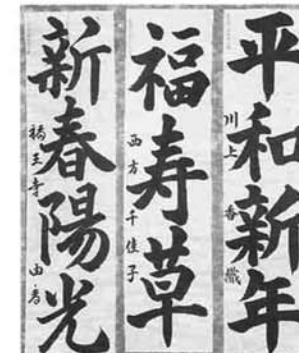 平和新年
川上 香織
福寿草
西方千佳子
新春陽光
福王寺 由香